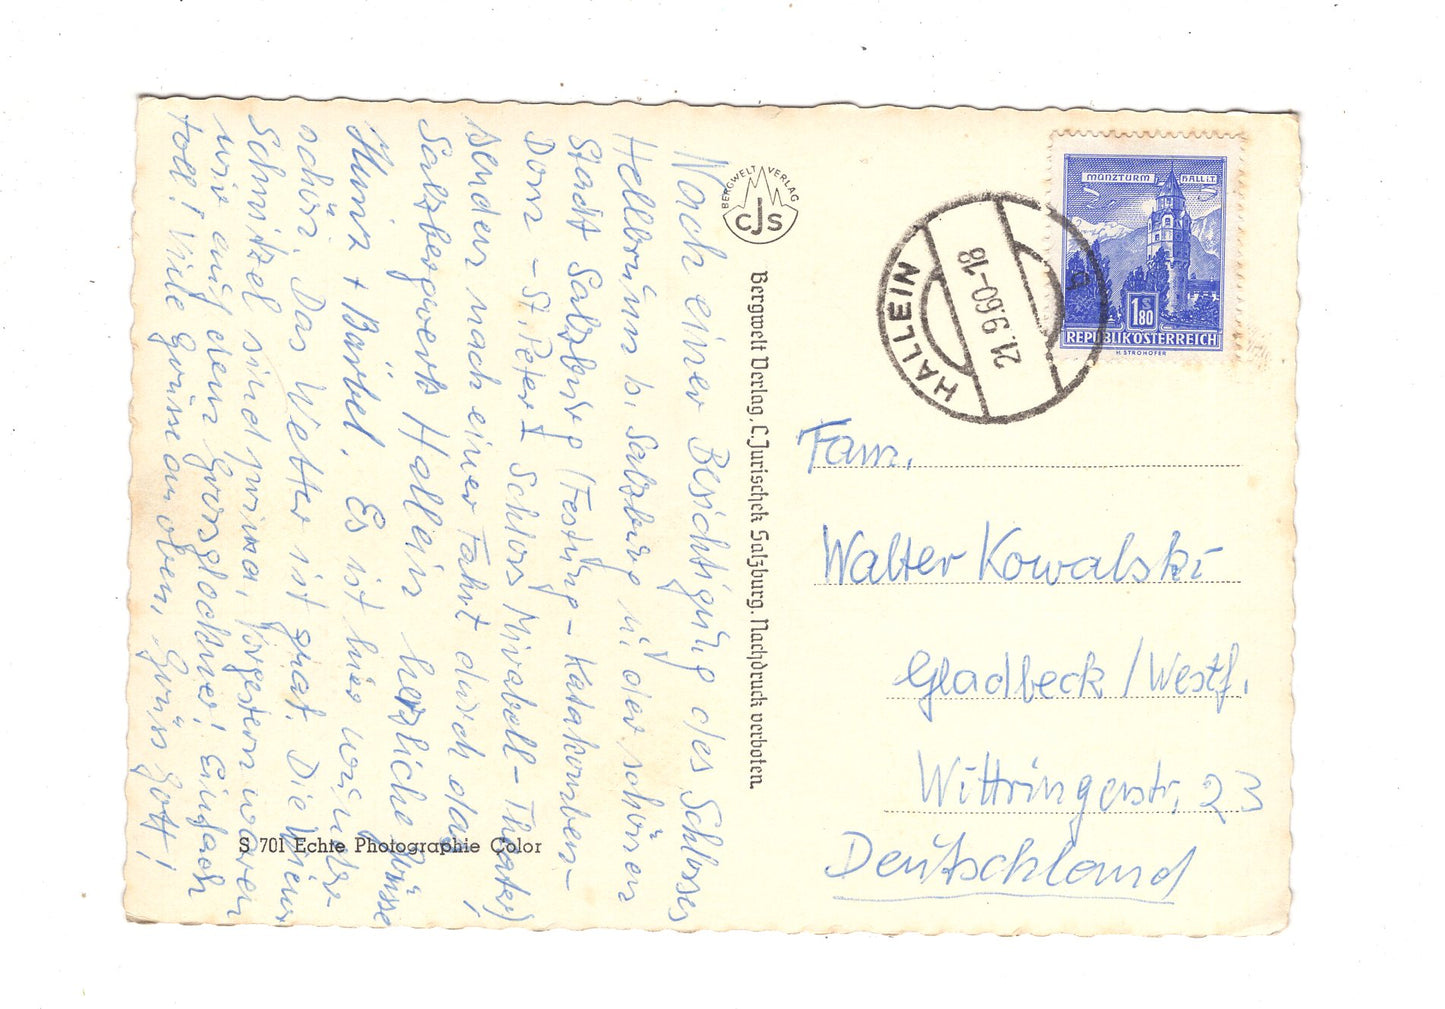 Nach einer Besichtigung des Schlosses
Hellbrunn b. Salzburg u. der schönen
Stadt Salzburg (Festung - Katakomben -
Dom - St. Peter - Schloss Mirabell - Theater)
senden nach einer Fahrt durch das
Salzbergwerk Hallein herzliche Grüsse
+ Bärbel. Es ist hier wunder-
schön. Das Wetter ist gut. Die Wiener
Schnitzel sind prima. Vorgestern waren
wir auf dem Grossglockner! Einfach
toll! Viele Grüsse an oben, Grüss Gott!
S 701 Echte Photographie Color
BERGWELT VERLAG
CJS
Bergwelt Verlag, C. Jurischek Salzburg. Nachdruck verboten.
HALLEIN
21.9.60-18
MÜNZTURM HALL i.T.
S
1.80
REPUBLIK ÖSTERREICH
H. STROHOFER
Fam.
Walter Kowalski
Gladbeck / Westf.
Wittringerstr. 23
Deutschland